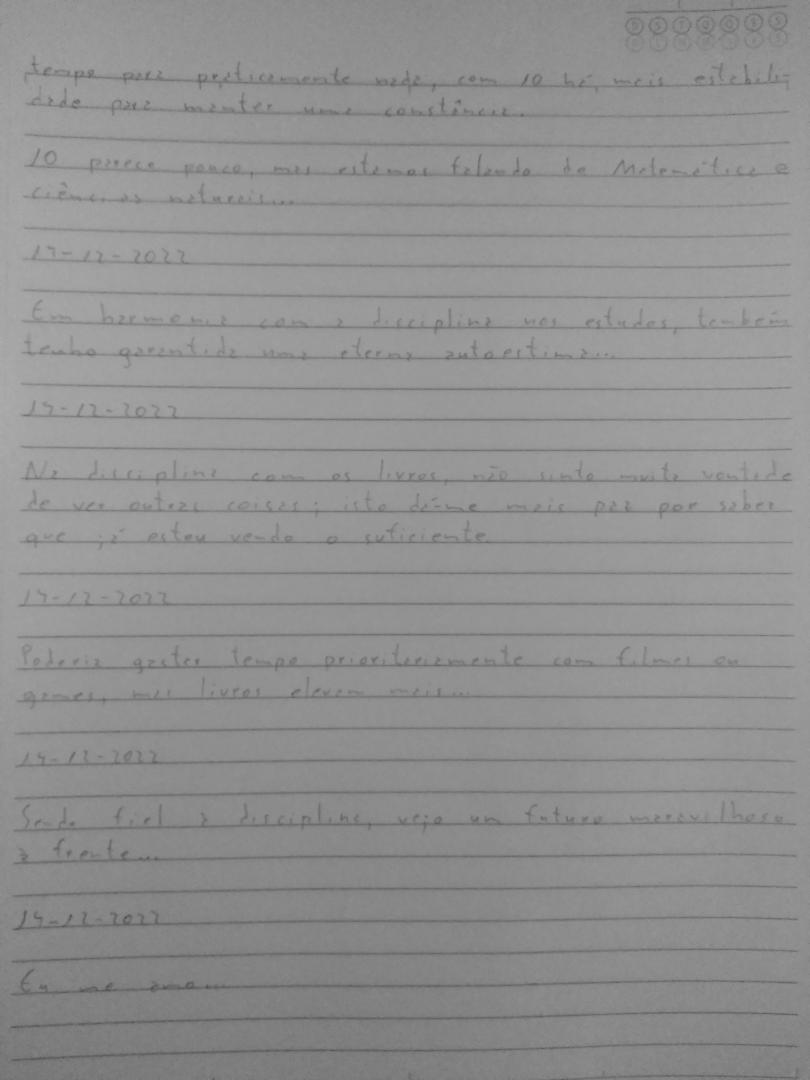 D S T Q Q S S
tempo para praticamente nada, com 10 há, mais estabili-
dade para manter uma constância.
10 parece pouco, mas estamos falando de Matemática e
ciências naturais...
14-12-2022
Em harmonia com a disciplina nos estudos, também
tenho garantida uma eterna autoestima...
14-12-2022
Na disciplina com os livros, não sinto muita vontade
de ver outras coisas; isto dá-me mais paz por saber
que já estou vendo o suficiente.
14-12-2022
Poderia gastar tempo prioritariamente com filmes ou
games, mas livros elevam mais...
14-12-2022
Sendo fiel à disciplina, vejo um futuro maravilhoso
à frente...
14-12-2022
Eu me amo...